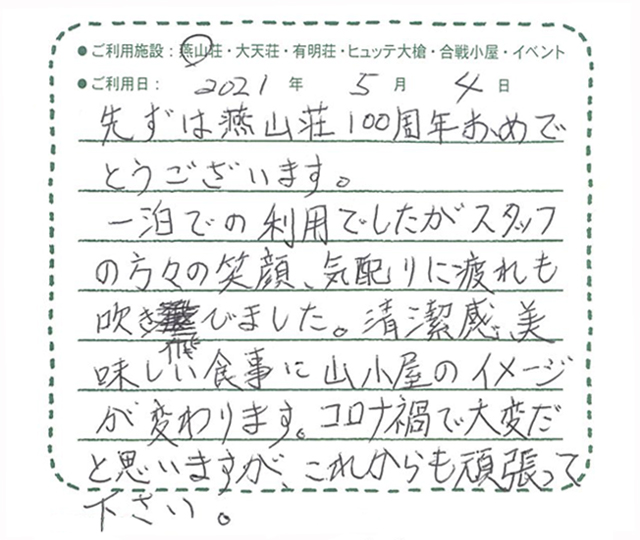 ●ご利用施設：燕山荘・大天荘・有明荘・ヒュッテ大槍・合戦小屋・イベント
●ご利用日： 2021 年 5 月 4 日
先ずは燕山荘100周年おめで
とうございます。
一泊での利用でしたがスタッフ
の方々の笑顔、気配りに疲れも
吹き飛びました。清潔感、美
味しい食事に山小屋のイメージ
が変わります。コロナ禍で大変だ
と思いますが、これからも頑張って
下さい。